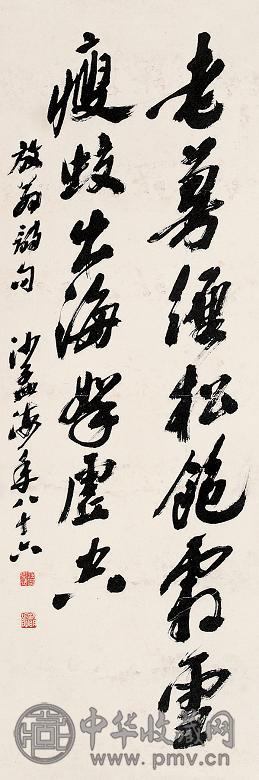 老蔓纏松飽霜雪
瘦蛟出海拏虛空
放翁詩句 沙孟海年八十六
中华收藏网
www.pmv.cn